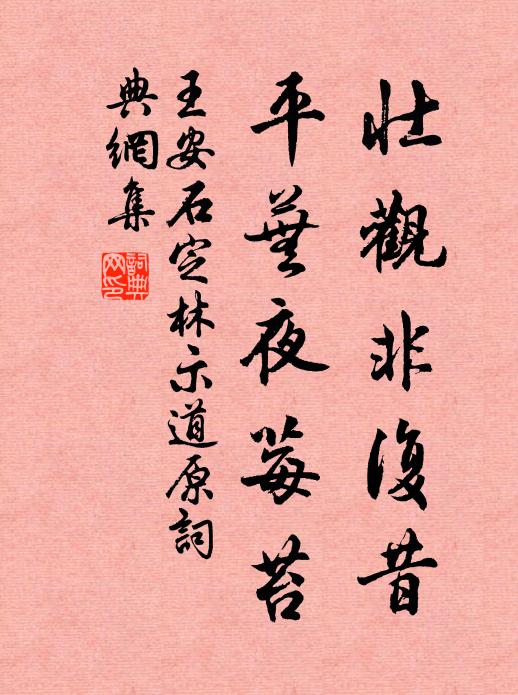 壯觀非復昔
平蕪夜莓苔
王安石定林示道原詞
典網集
詞典
网印